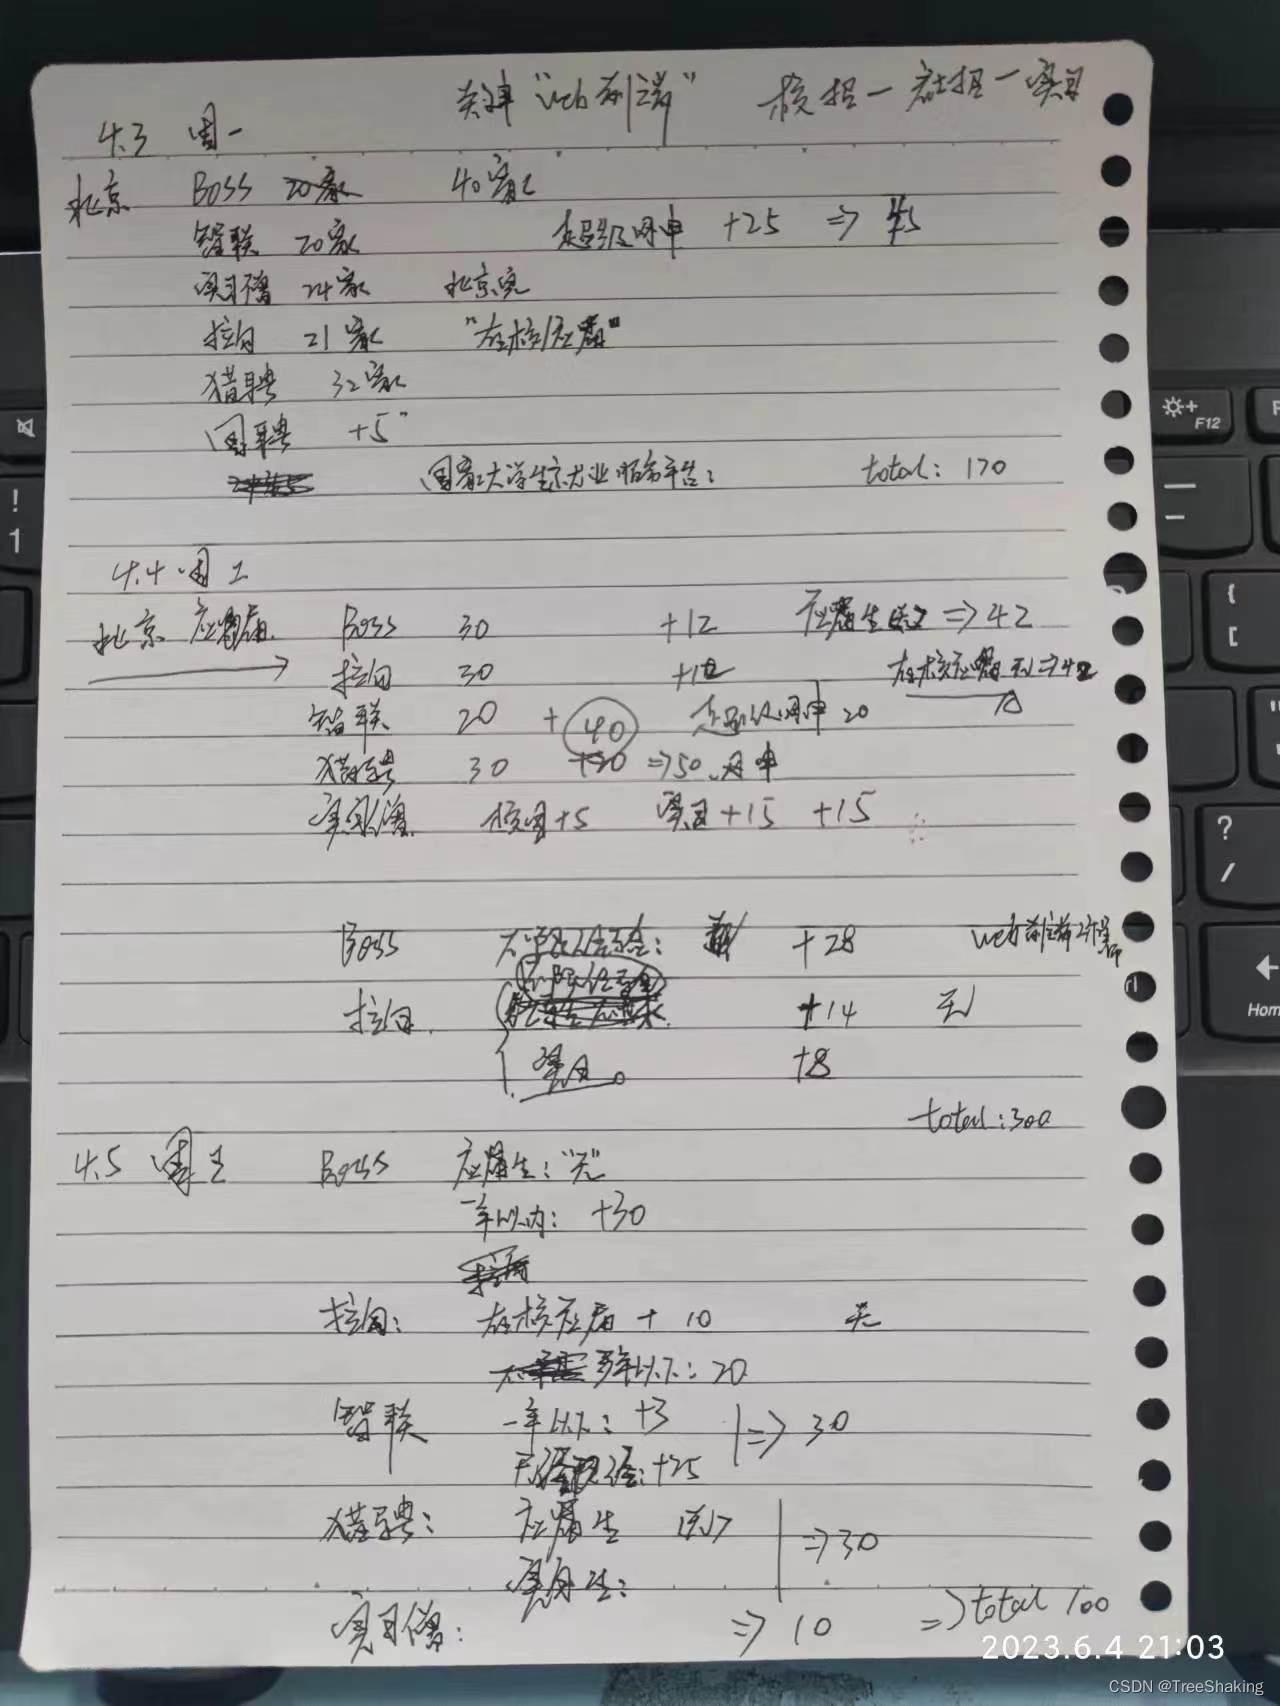 关键 "web前端" 校招一社招一实习
4.3 周一
北京 Boss 20家 40家
智联 20家 超级网申 +25 => 45
实习僧 24家 北京完
拉勾 21家 "在校/应届"
猎聘 32家
国聘 +5
国家大学生就业服务平台: total: 170
4.4 周二
北京 应届 Boss 30 +12 应届生 => 42
拉勾 30 +12 在校应届 => 42
智联 20 + 40 超级网申 20
猎聘 30 +20 => 50 网申
实习僧 校园+5 实习+15 +15
Boss +28 web前端
拉勾 +14 无
实习 +8
total: 300
4.5 周三 Boss 应届生: "无"
一年以内: +30
拉勾: 在校应届 + 10 无
年以下: 20
智联 一年以下: +3 => 30
无经验: +25
猎聘: 应届生 => 30
实习生:
实习僧: => 10 => total 100
2023.6.4 21:03
CSDN @TreeShaking
F12
! 1
{ [
? /
Home